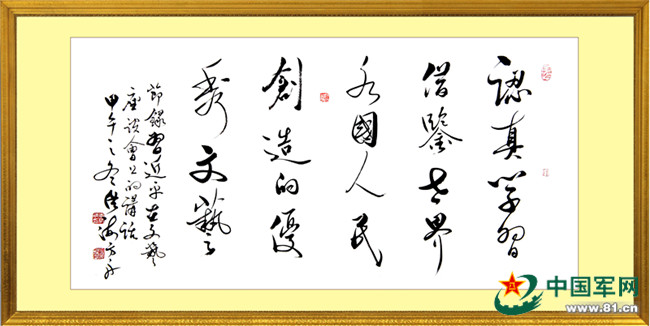 認真學習
借鑒世界
各國人民
創造的優
秀文藝
節錄習近平在文藝
座談會上的講話
甲午之冬
中国军网
www.81.cn